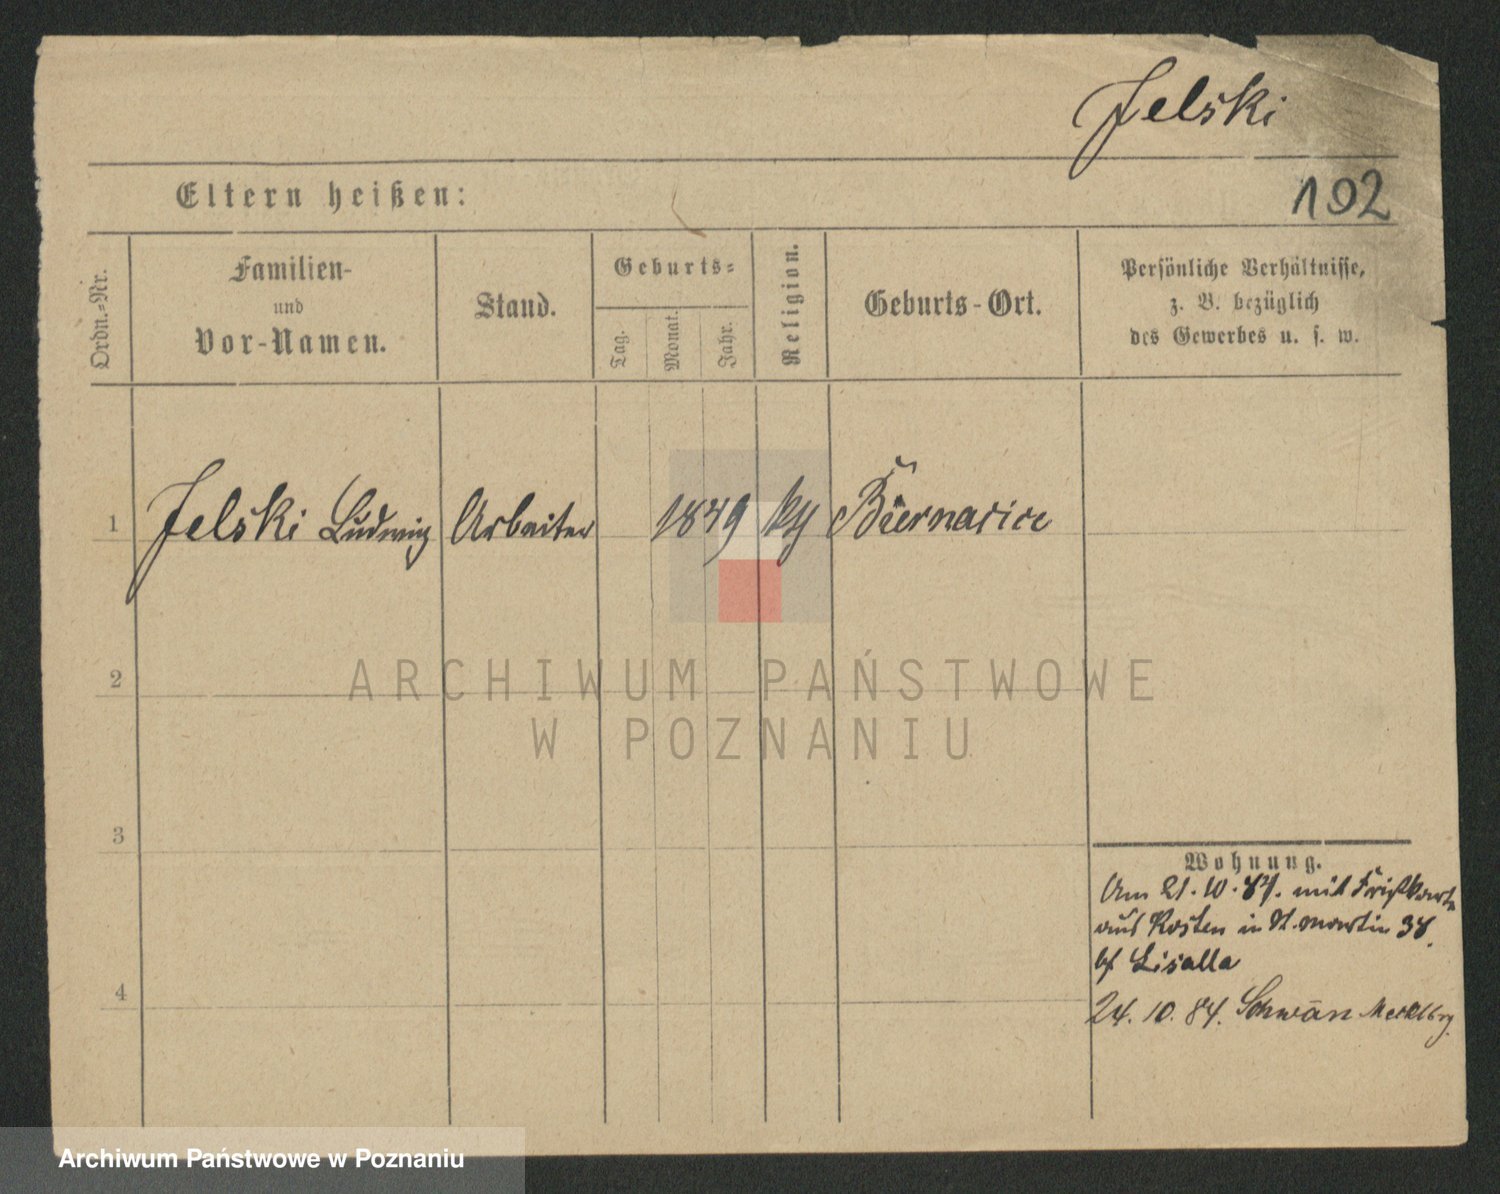 Jelski
192
Eltern heißen:
Ordn.=Nr.
Familien-
und
Vor-Namen.
Stand.
Geburts=
Tag.
Monat.
Jahr.
Religion.
Geburts-Ort.
Persönliche Verhältnisse,
z. B. bezüglich
des Gewerbes u. s. w.
1 Jelski Ludwig Arbeiter 1849 Biernacice
2
ARCHIWUM PAŃSTWOWE
W POZNANIU
3
Wohnung.
Am 21. 10. 84. mit
aus Kosten in St. Martin 38
bei Lisalla
4
24. 10. 84. Schwan Mecklbrg.
Archiwum Państwowe w Poznaniu